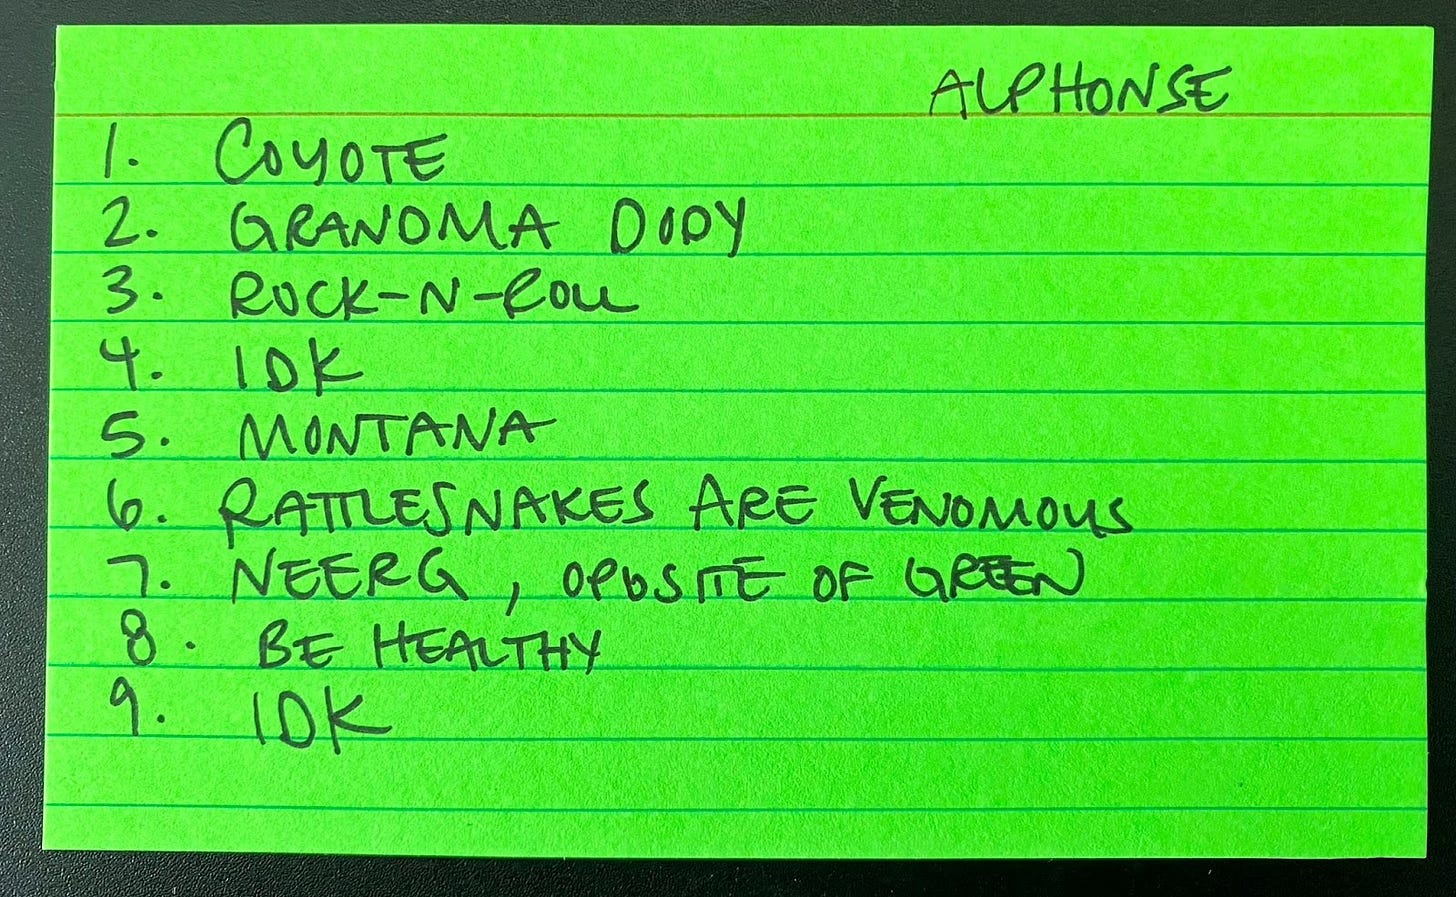 ALPHONSE
1. COYOTE
2. GRANDMA DODY
3. ROCK-N-ROLL
4. IDK
5. MONTANA
6. RATTLESNAKES ARE VENOMOUS
7. NEERG, OPOSITE OF GREEN
8. BE HEALTHY
9. IDK